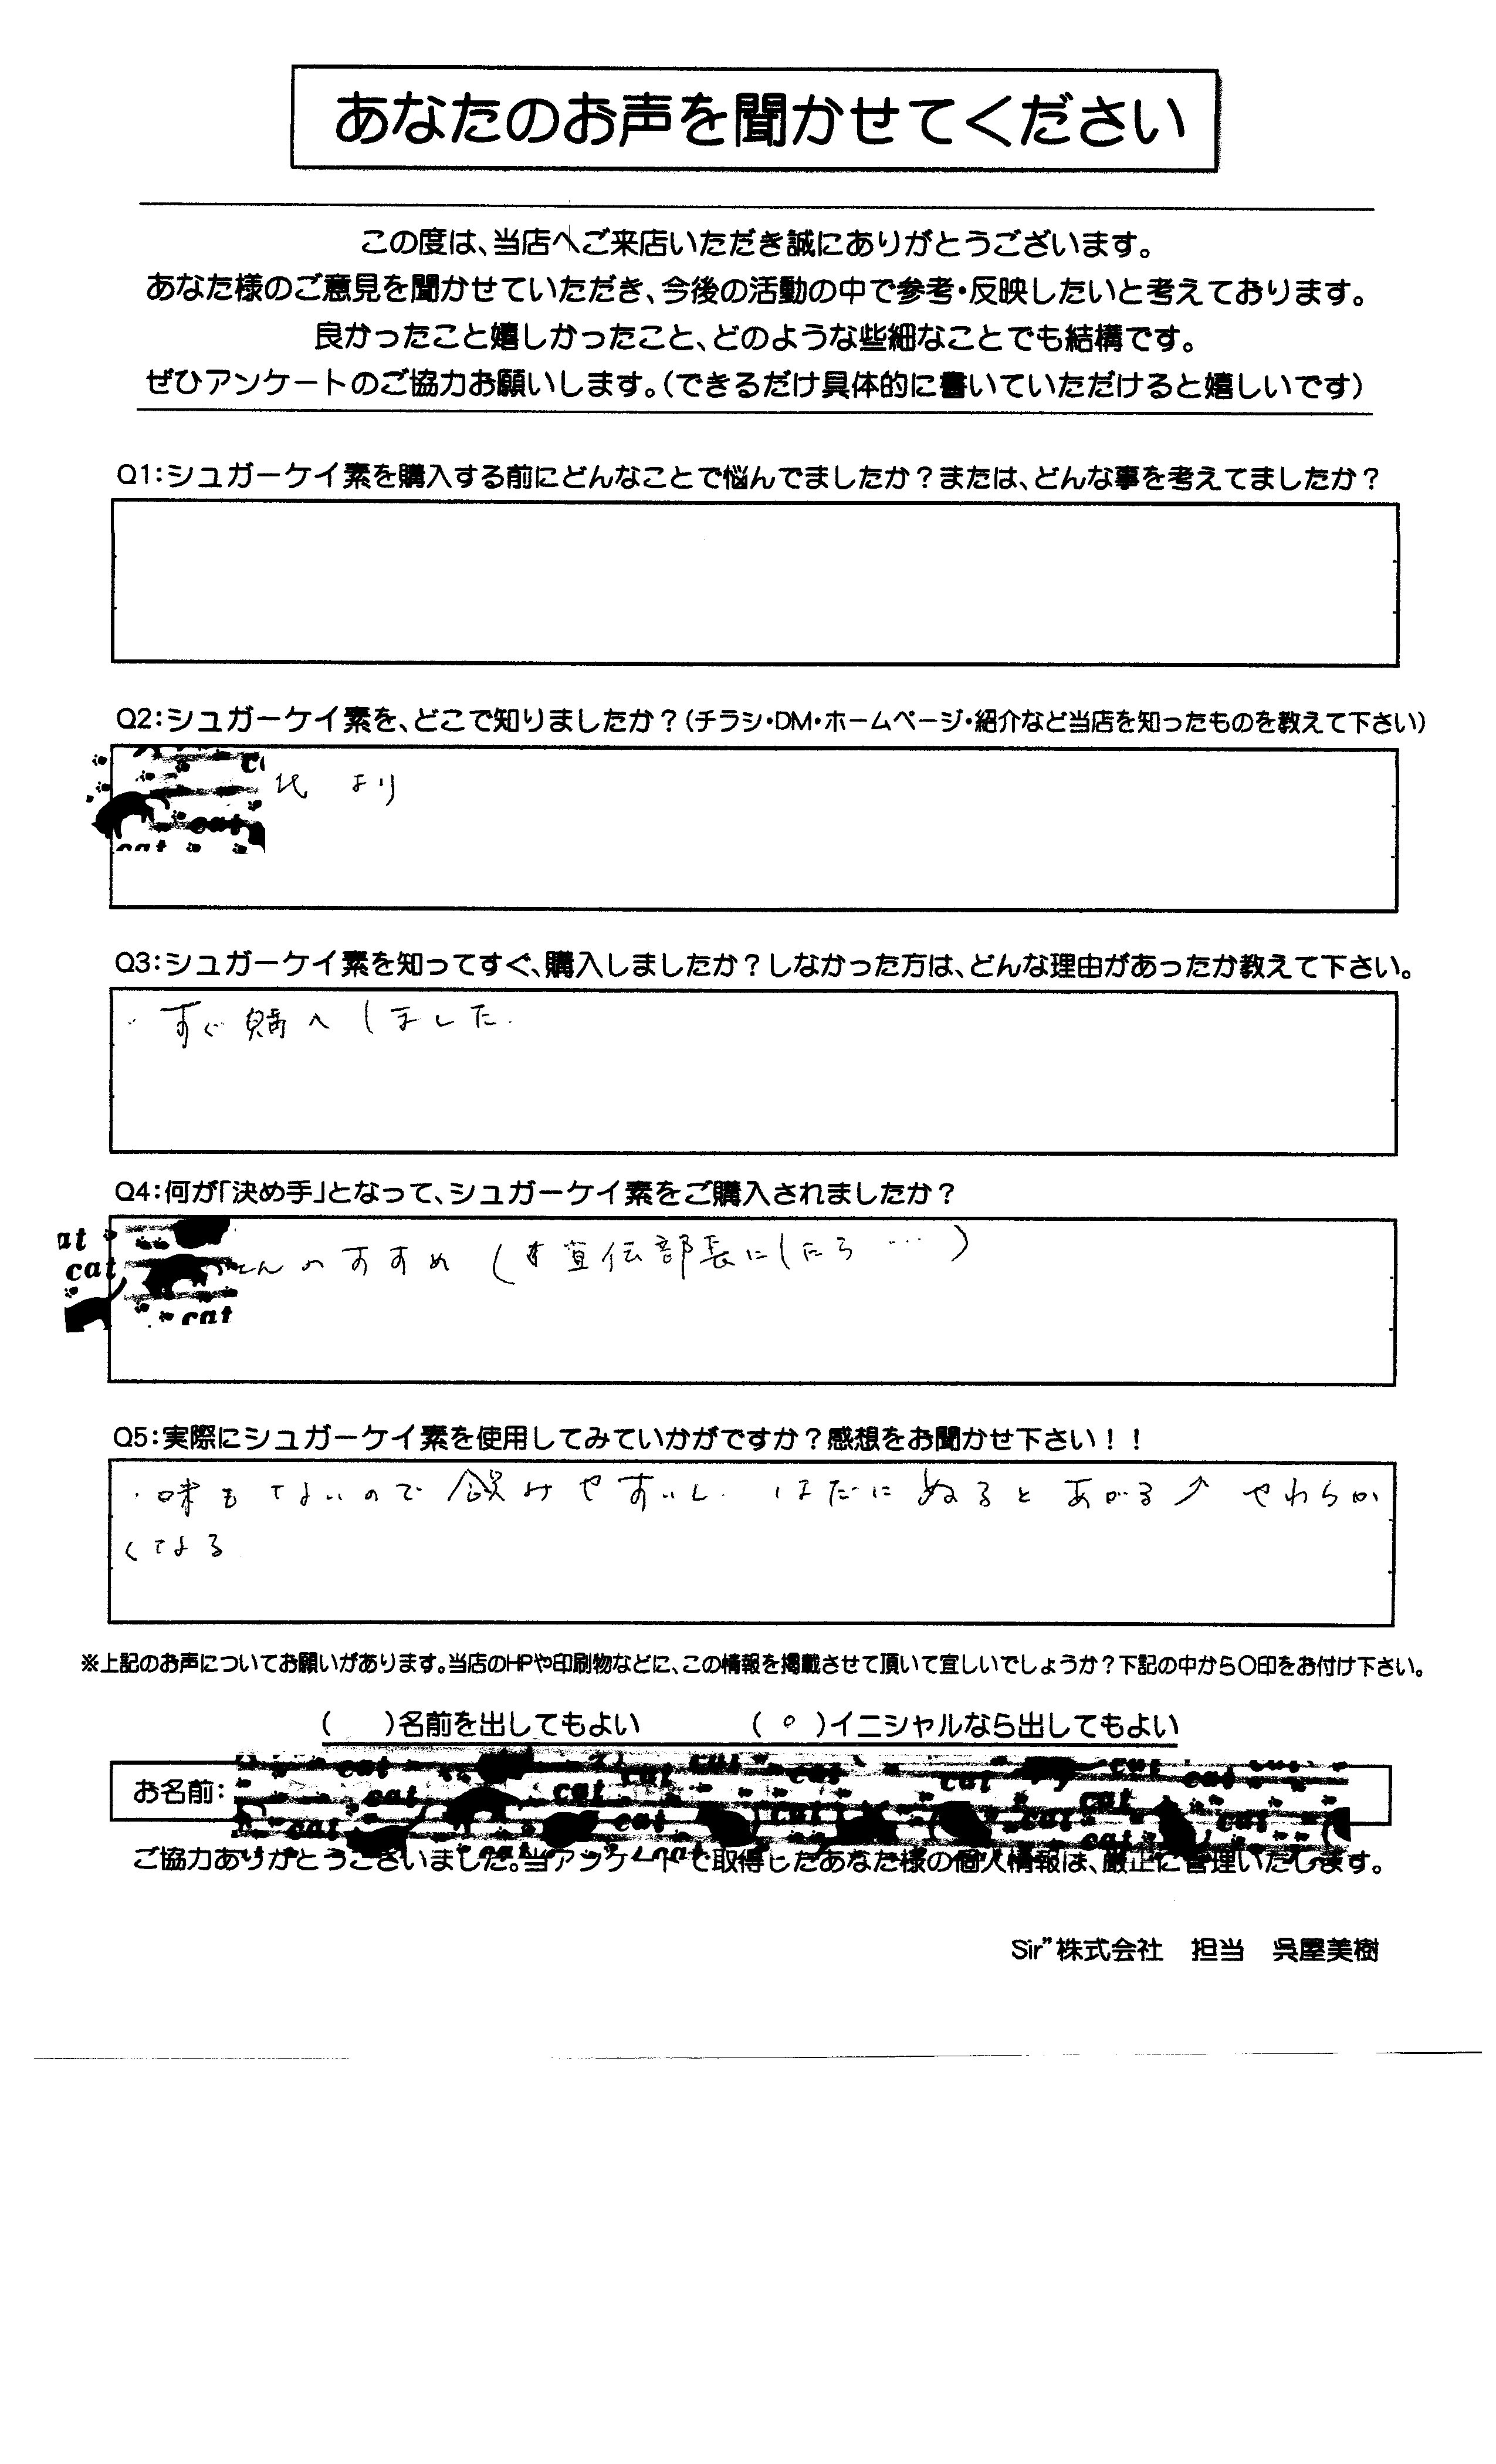 あなたのお声を聞かせてください
この度は、当店へご来店いただき誠にありがとうございます。
あなた様のご意見を聞かせていただき、今後の活動の中で参考・反映したいと考えております。
良かったこと嬉しかったこと、どのような些細なことでも結構です。
ぜひアンケートのご協力お願いします。(できるだけ具体的に書いていただけると嬉しいです)
Q1:シュガーケイ素を購入する前にどんなことで悩んでましたか?または、どんな事を考えてましたか?
Q2:シュガーケイ素を、どこで知りましたか?(チラシ・DM・ホームページ・紹介など当店を知ったものを教えて下さい)
氏 より
Q3:シュガーケイ素を知ってすぐ、購入しましたか?しなかった方は、どんな理由があったか教えて下さい。
・すぐ購入しました.
Q4:何が「決め手」となって、シュガーケイ素をご購入されましたか?
さんのすすめ( 宣伝部長にしたら…)
Q5:実際にシュガーケイ素を使用してみていかがですか?感想をお聞かせ下さい!!
・味もないので飲みやすいし. はだにぬるとあがる↗ やわらか
くなる
※上記のお声についてお願いがあります。当店のHPや印刷物などに、この情報を掲載させて頂いて宜しいでしょうか?下記の中から○印をお付け下さい。
( )名前を出してもよい (○)イニシャルなら出してもよい
お名前:
ご協力ありがとうございました。当アンケートで取得したあなた様の個人情報は、厳正に管理いたします。
Sir"株式会社 担当 呉屋美樹